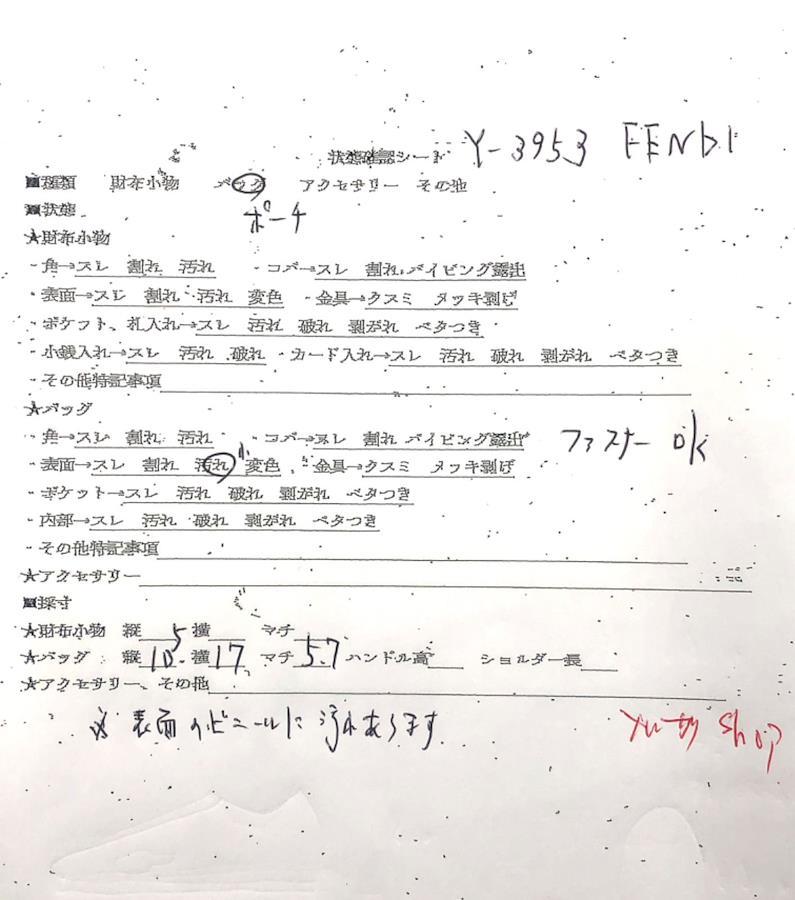 状態確認シート Y-3953 FENDI
■種類 財布小物 バッグ アクセサリー その他
■状態 ポーチ
★財布小物
・角→スレ 割れ 汚れ ・コバ→スレ 割れ パイピング露出
・表面→スレ 割れ 汚れ 変色 ・金具→クスミ メッキ剥げ
・ポケット、札入れ→スレ 汚れ 破れ 剥がれ ベタつき
・小銭入れ→スレ 汚れ 破れ ・カード入れ→スレ 汚れ 破れ 剥がれ ベタつき
・その他特記事項
★バッグ
・角→スレ 割れ 汚れ ・コバ→スレ 割れ パイピング露出 ファスナー OK
・表面→スレ 割れ 汚れ 小 変色 ・金具→クスミ メッキ剥げ
・ポケット→スレ 汚れ 破れ 剥がれ ベタつき
・内部→スレ 汚れ 破れ 剥がれ ベタつき
・その他特記事項
★アクセサリー
■採寸
★財布小物 縦 横 マチ
★バッグ 縦 10.5 横 17 マチ 5.7 ハンドル高 ショルダー長
★アクセサリー、その他
※ 表面のビニールに汚れあります
shop